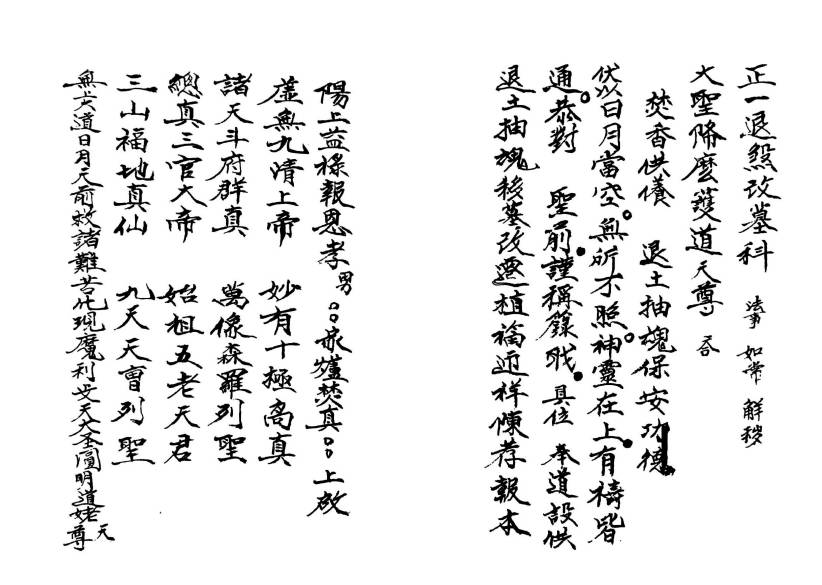 正一退煞改墓科 法事 如常 解穢
大聖降魔護道天尊 仝
焚香供養 退土抽魂保安功德
伏以日月當空。無所不照。神靈在上。有禱皆
通。恭對 聖前。謹稱籙職。具位 奉道設供
退土抽魂移墓改遷植福迎祥懷荐報本
陽上益祿報恩孝男 。。家爐焚真。。上啟
虛無九清上帝 妙有十極高真
諸天斗府群真 萬像森羅列聖
總真三官大帝 始祖五老天君
三山福地真仙 九天天曹列聖
無上大道日月天前救諸難苦化現魔利攴天大圣圓明道姥天尊